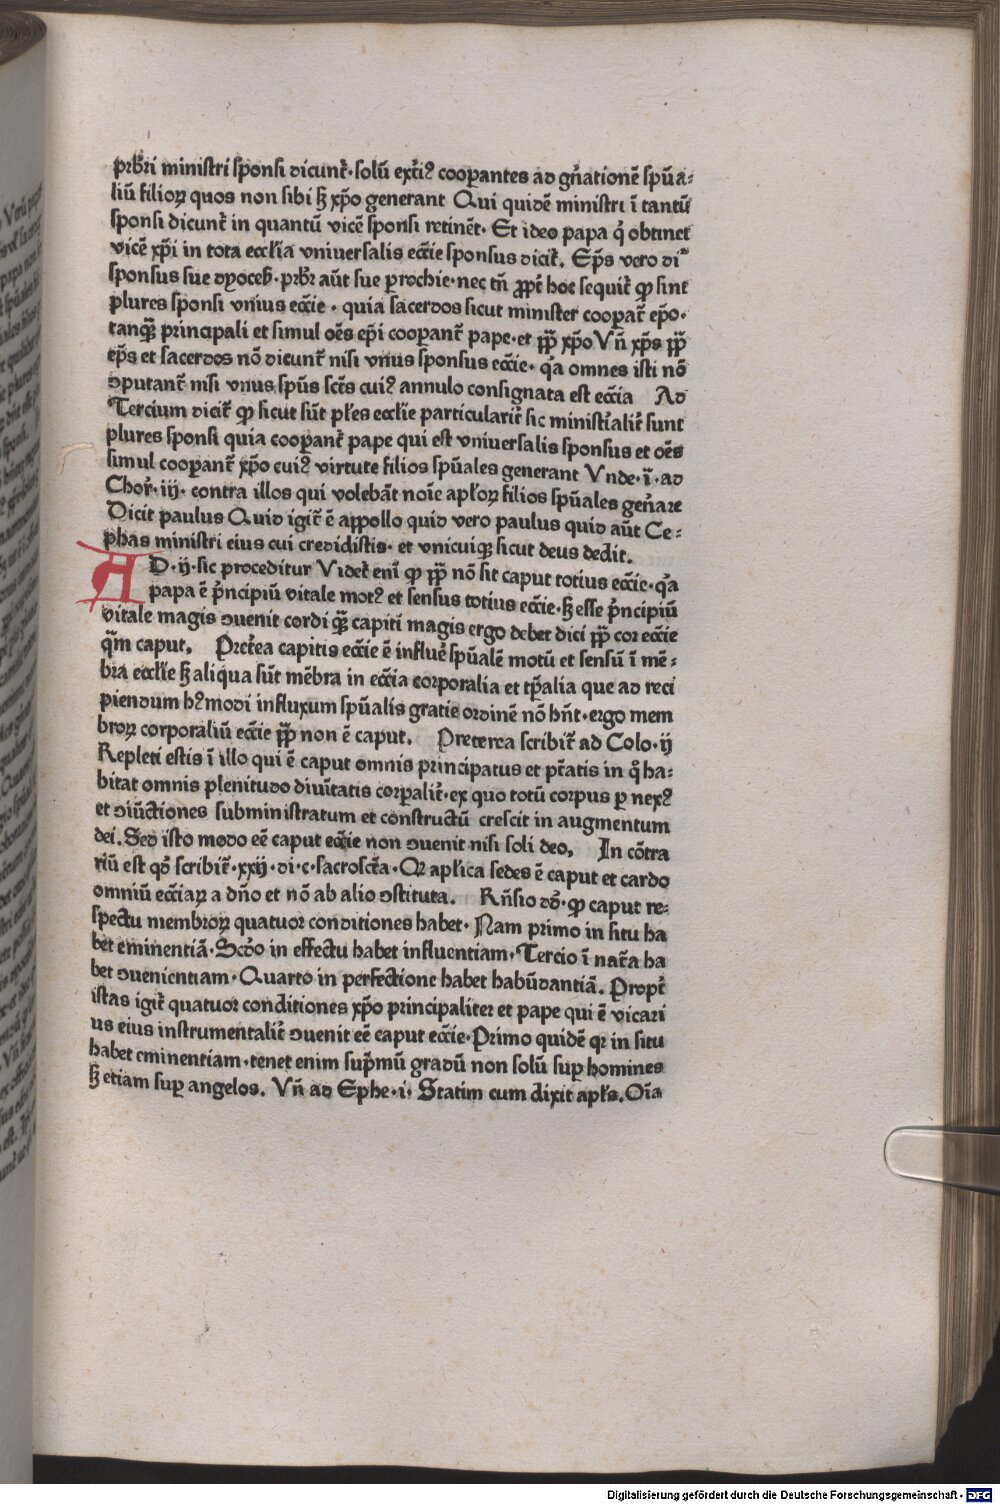 prb̃ri ministri sponsi dicunt᷑· solũ ext᷑iꝰ cooꝑantes ad gñationẽ spũa⸗
liũ filioꝝ quos non sibi sꝫ xp̃o generant Qui quidẽ ministri ĩ tantũ
sponsi dicunt᷑ in quantũ vicẽ sponsi retinẽt· Et ideo papa q̇ obtinet
vicẽ xp̃i in tota ecclĩa vniuersalis ecc̃ie sponsus dicit᷑. Ep̃s vero
sponsus sue dyoceß· prb̃r aũt sue ꝑrochie· nec tñ ꝓpt᷑ hoc sequit᷑ ꝙ sint
plures sponsi vnius ecc̃ie · quia sacerdos sicut minister cooꝑat᷑ ep̃o·
tanꝙ̃ principali et simul oẽs ep̃i cooꝑant᷑ pape· et ꝓp̃ xp̃o Vñ xp̃s ꝓp̃
ep̃s et sacerdos nõ dicunt᷑ nisi vnus sponsus ecc̃ie· q̃a omnes isti nõ
ꝯputant᷑ nisi vnus spũs sct̃s cuiꝰ annulo consignata est ecc̃ia Ad
Tercium dicit᷑ ꝙ sicut sũt pl̃es eccl̃ie particularit᷑ sic minist᷑ialit᷑ sunt
plures sponsi quia cooꝑant᷑ pape qui est vniuersalis sponsus et oẽs
simul cooꝑant᷑ xp̃o cuiꝰ virtute filios spũales generant Vnde· ĩ· ad
Chor᷑· iij· contra illos qui volebãt noĩe apl̃oꝝ filios spũales geñare
Dicit paulus Quid igit᷑ ẽ appollo quid vero paulus quid aũt Ce⸗
phas ministri eius cui credidistis· et vnicuiqꝫ sicut deus dedit.
AD· ij· sic proceditur Videt᷑ enĩ ꝙ ꝓp̃ nõ sit caput totius ecc̃ie· q̃a
papa ẽ p̃ncipiũ vitale motꝰ et sensus totius ecc̃ie· sꝫ esse p̃ncipiũ
vitale magis ꝯuenit cordi ꝙ̃ capiti magis ergo debet dici ꝓp̃ cor ecc̃ie
q̃m caput. Pret᷑ea capitis ecc̃ie ẽ influe᷑ spũalẽ motũ et sensũ ĩ mẽ⸗
bra eccl̃ie sꝫ aliqua sũt mẽbra in ecc̃ia corporalia et tp̃alia que ad reci
piendum hꝰmodi influxum spũalis gratie ordinẽ nõ hñt· ergo mem
broꝝ corporaliũ ecc̃ie ꝓp̃ non ẽ caput. Preterea scribit᷑ ad Colo· ij
Repleti estis ĩ illo qui ẽ caput omnis principatus et pt᷑atis in q̇ ha⸗
bitat omnis plenitudo diuĩtatis corꝑalit᷑· ex quo totũ corpus ꝑ nexꝰ
et ꝯiũctiones subministratum et constructũ crescit in augmentum
dei. Sed isto modo eẽ caput ecc̃ie non ꝯuenit nisi soli deo. In cõtra
riũ est qđ scribit᷑· xxij· di· c· sacrosct̃a· Qꝛ apl̃ica sedes ẽ caput et cardo
omniũ ecc̃iaꝝ a dño et nõ ab alio ꝯstituta. Rñsio dõ· ꝙ caput re⸗
spectu membroꝝ quatuor conditiones habet· Nam primo in situ ha
bet eminentiã· Scđo in effectu habet influentiam· Tercio ĩ nat᷑a ha
bet ꝯuenientiam· Quarto in perfectione habet habũdantiã. Propt᷑
istas igit᷑ quatuor conditiones xp̃o principaliter et pape qui ẽ vicari
us eius instrumentalit᷑ ꝯuenit eẽ caput ecc̃ie· Primo quidẽ qꝛ in situ
habet eminentiam· tenet enim sup̃mũ gradũ non solũ suꝑ homines
sꝫ etiam suꝑ angelos. Vñ ad Ephe· i· Statim cum dixit apl̃s. Oĩa
Digitalisierung gefördert durch die Deutsche Forschungsgemeinschaft - DFG